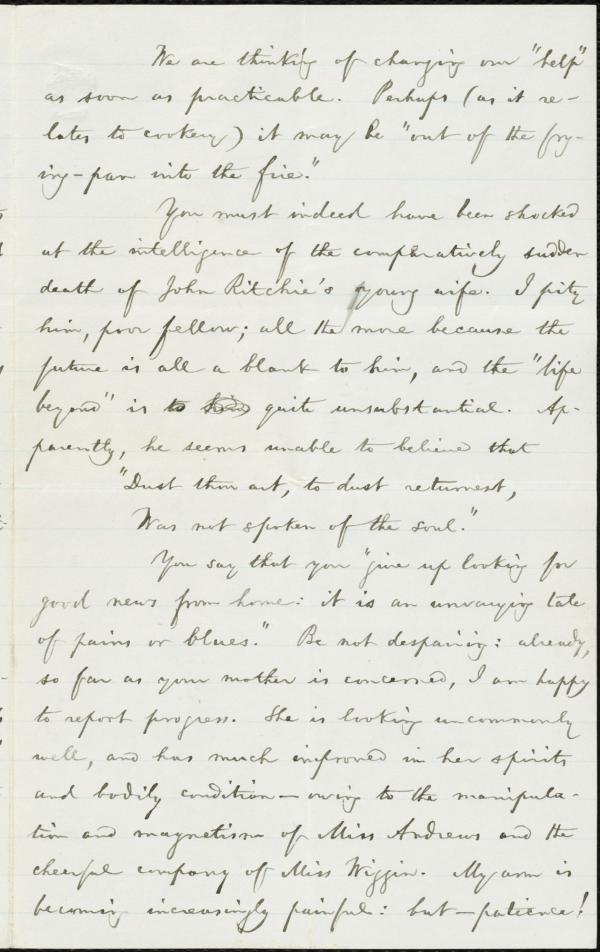 We are thinking of changing our "help"
as soon as practicable. Perhaps (as it re-
lates to cookery) it may be "out of the fry-
ing-pan into the fire."
You must indeed have been shocked
at the intelligence of the comparatively sudden
death of John Ritchie's young wife. I pity
him, poor fellow; all the more because the
future is all a blank to him, and the "life
beyond" is to him quite unsubstantial. Ap-
parently, he seems unable to believe that
"Dust thou art, to dust returnest,
Was not spoken of the soul."
You say that you "give up looking for
good news from home: it is an unvarying tale
of pains or blues." Be not despairing: already,
so far as your mother is concerned, I am happy
to report progress. She is looking uncommonly
well, and has much improved in her spirits
and bodily condition—owing to the manipula-
tion and magnetism of Miss Andrews and the
cheerful company of Miss Wiggin. My arm is
becoming increasingly painful: but—patience!